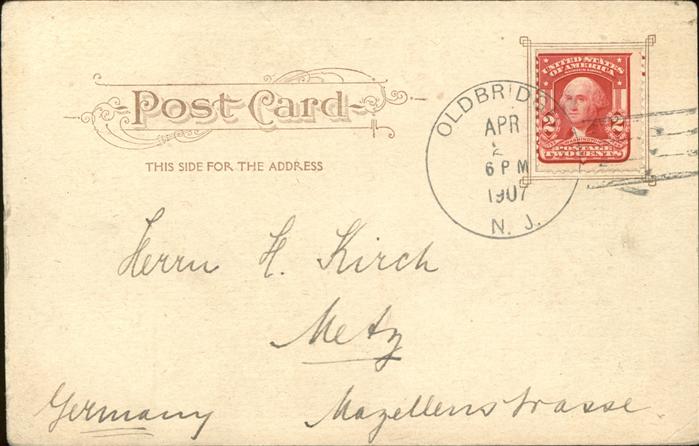 Post Card
THIS SIDE FOR THE ADDRESS
OLDBRIDGE
APR
2
6 PM
1907
N. J.
UNITED STATES
OF AMERICA
2 2
POSTAGE
TWO CENTS
Herrn H. Kirch
Metz
Germany Mazellenstrasse